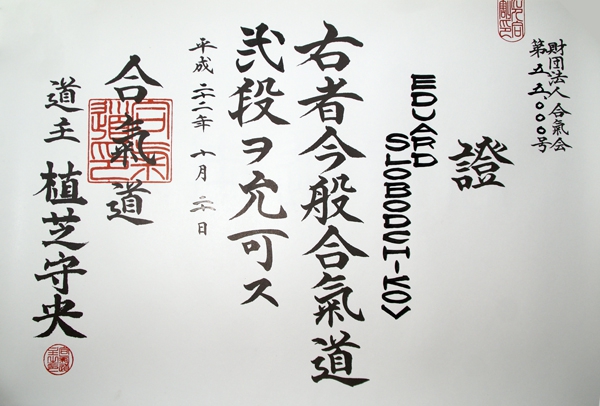 財団法人 合氣会
第五五,〇〇〇号
證
EDUARD
SLOBODCHIKOV
右者今般合氣道
弐段ヲ允可ス
平成二二年 十月 日
合氣道
道主 植芝守央